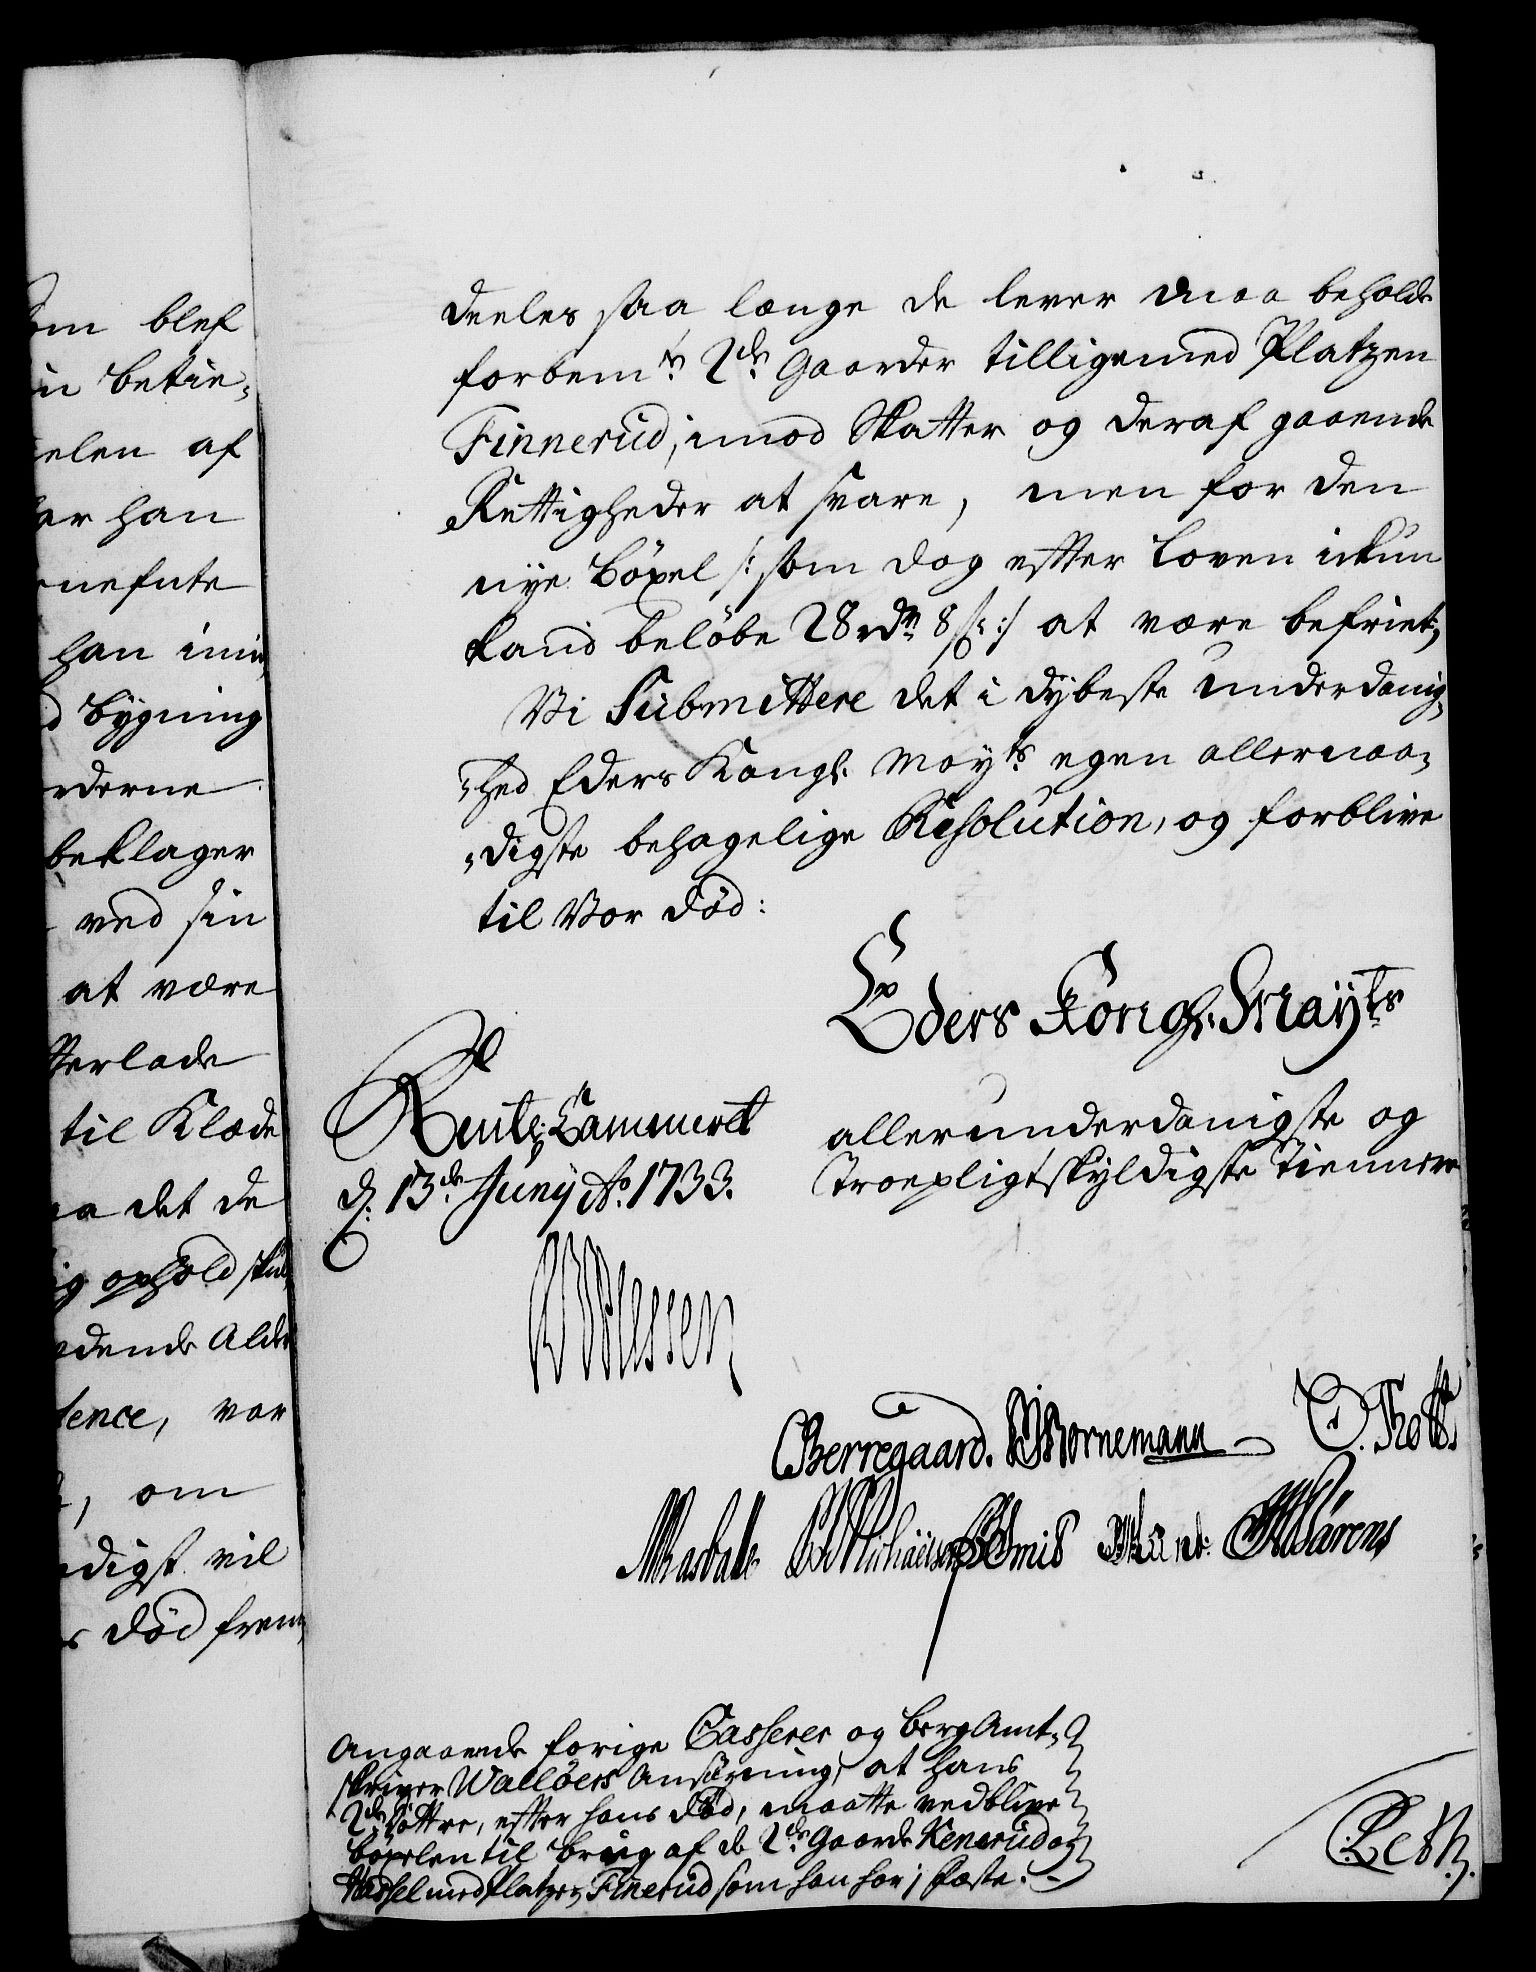 om blef
in betie-
elen af
er han
nefnte
han inin
d bygning
rderne
beklager
ved sin
at være
terlade
til Klæde
aa det de
ig ophold skul
dende Alder
tence, var
, om
digst vil
s død frem
deeles saa længe de lever maa beholde
forbemte 2de Gaarder tilligemed Platzen
Finnerud, imod Skatter og deraf gaaende
Rettigheder at svare, men for den
nye böxel /: som dog efter Loven ikun
kand belöbe 28 rdr 8 s :/ at være befriet,
Vi Submittere det i dybeste underdanig-
-hed Eders Kongl. Mayts egen allernaa-
-digste behagelige Resolution, og forblive
til Vor död:
Eders Kongl. Mayts
allerunderdanigste og
Troepligtskyldigste Tiennere
Rente Cammeret
d. 13de Junÿ Ao 1733.
Plessen
CBerregaard. Bornemann O. Thott
Rasbech Michaelsen Smid Kårens
Angaaende forige Casserer og berg Amt-
skriver Walløers Ansögning, at hans
2de döttre, efter hans död, maatte vedblive
böxelen til brug af de 2de Gaarde Kenerud og
Hassel med Platzen Finerud som han har i Fæste.